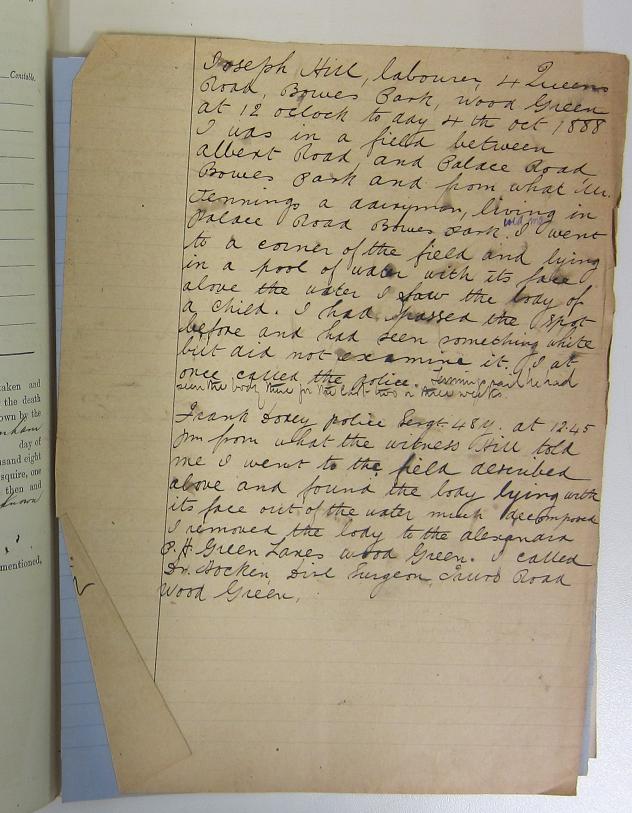 Constable.
Joseph Hill, labourer, 4 Queens
Road, Bowes Park, Wood Green
at 12 oclock to day 4th Oct 1888
I was in a field between
Albert Road and Palace Road
Bowes Park and from what Mr.
Jennings a dairyman, living in
Palace Road Bowes Park told me I went
to a corner of the field and lying
in a pool of water with its face
above the water I saw the body of
a child. I had passed the spot
before and had seen something white
but did not examine it. I at
once called the police. Jennings said he had
seen the body there for the last two or three weeks.
Frank Dorey police Sergt. 48Y. at 12.45
pm from what the witness Hill told
me I went to the field described
above and found the body lying with
its face out of the water much decomposed
I removed the body to the Alexandra
P.H. Green Lanes Wood Green. I called
Dr. Hocken, Divl Surgeon, Truro Road
Wood Green.
taken and
the death
own by the
nham
day of
usand eight
squire, one
then and
known
mentioned,